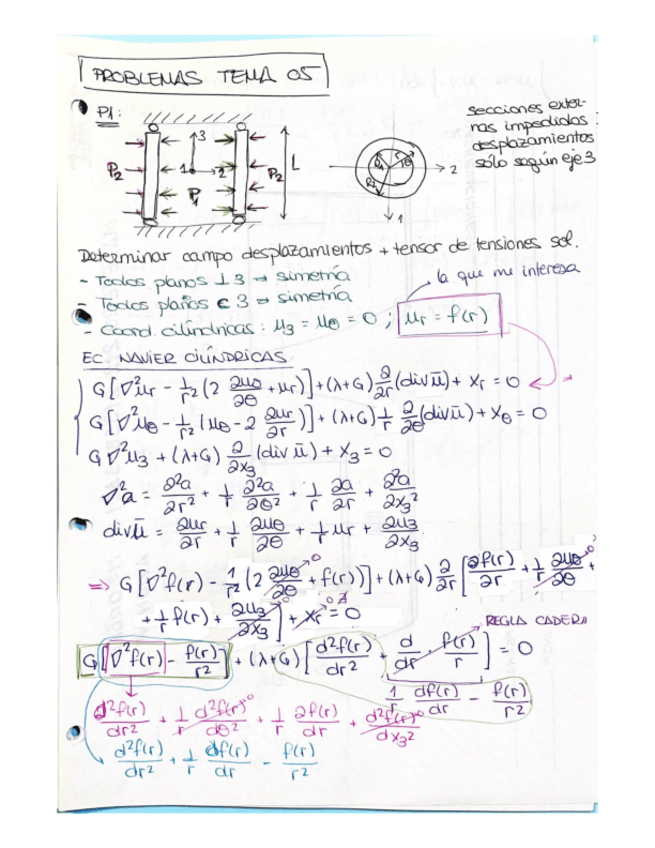 PROBLEMAS TEMA 05
P1:
secciones exter-
nas impedidos
desplazamientos
sólo según eje 3
3
1
2
P2
P1
P2
L
R1
r
θ
R2
2
1
Determinar campo desplazamientos + tensor de tensiones sol.
- Todos planos ⊥ 3 → simetría
la que me interesa
- Todos planos ⊂ 3 → simetría
- Coord. cilíndricas: μ3 = μθ = 0 ; μr = f(r)
EC. NAVIER CILÍNDRICAS
G[∇²μr - 1/r² (2 ∂μθ/∂θ + μr)] + (λ+G) ∂/∂r (div ū) + Xr = 0
G[∇²μθ - 1/r² (μθ - 2 ∂μr/∂r)] + (λ+G) 1/r ∂/∂θ (div ū) + Xθ = 0
G∇²μ3 + (λ+G) ∂/∂x3 (div ū) + X3 = 0
∇²a = ∂²a/∂r² + 1/r ∂²a/∂θ² + 1/r ∂a/∂r + ∂²a/∂x3²
div ū = ∂μr/∂r + 1/r ∂μθ/∂θ + 1/r μr + ∂μ3/∂x3
⇒ G[∇²f(r) - 1/r² (2 ∂μθ/∂θ + f(r))] + (λ+G) ∂/∂r [∂f(r)/∂r + 1/r ∂μθ/∂θ +
+ 1/r f(r) + ∂μ3/∂x3] + Xr = 0
REGLA CADENA
G[∇²f(r) - f(r)/r²] + (λ+G) [d²f(r)/dr² + d/dr · f(r)/r] = 0
1/r df(r)/dr - f(r)/r²
d²f(r)/dr² + 1/r d²f(r)/dθ² + 1/r ∂f(r)/dr + d²f(r)/dx3²
d²f(r)/dr² + 1/r df(r)/dr - f(r)/r²